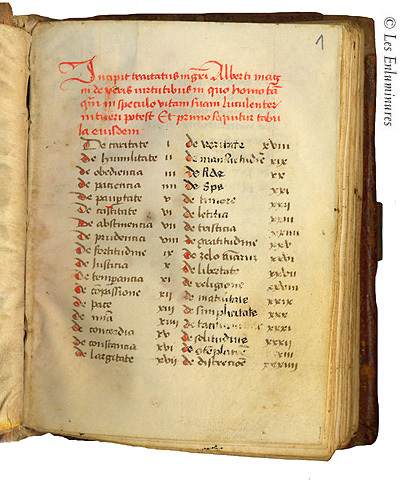 1
Incipit tractatus mgri Alberti mag
ni de veris virtutibus in quo homo tã
qm̃ in speculo vitam suam luculenter
intueri potest Et primo sequitur tabu
la eiusdem
De caritate i de veritate xviii
de humilitate ii de mansuetudine xix
de obediencia iii de fide xx
de paciencia iiii de spe xxi
de paupertate v de timore xxii
de castitate vi de leticia xxiii
de abstinencia vii de tristicia xxiiii
de prudencia viii de gratitudine xxv
de fortitudine ix de zelo
de iusticia x de libertate xxvii
de temperancia xi de religione
de compassione xii de maturitate xxix
de pace xiii de simplicitate xxx
de mia xiiii de taciturnitate xxxi
de concordia xv de solitudine xxxii
de constancia xvi de
de largitate xvii de discrecione xxxiiii
© Les Enluminures